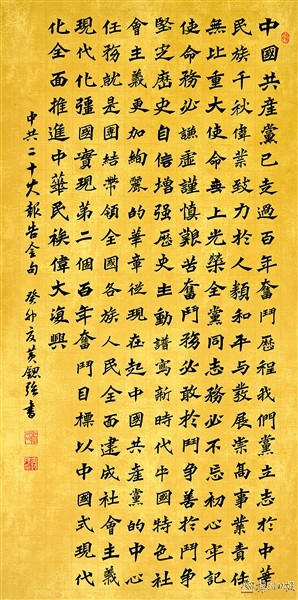 中國共産黨已走過百年奮鬥歷程我們黨立志於中華
民族千秋偉業致力於人類和平与發展崇高事業責任
無比重大使命無上光榮全黨同志務必不忘初心牢記
使命務必謙虛謹慎艱苦奮鬥務必敢於鬥爭善於鬥爭
堅定歷史自信增强歷史主動譜寫新時代中國特色社
會主義更加絢麗的華章從現在起中國共産黨的中心
任務就是團結帶領全國各族人民全面建成社會主義
現代化彊國實現第二個百年奮鬥目標以中國式現代
化全面推進中華民族偉大復興
中共二十大報告金句 癸卯夏黄鍶强書